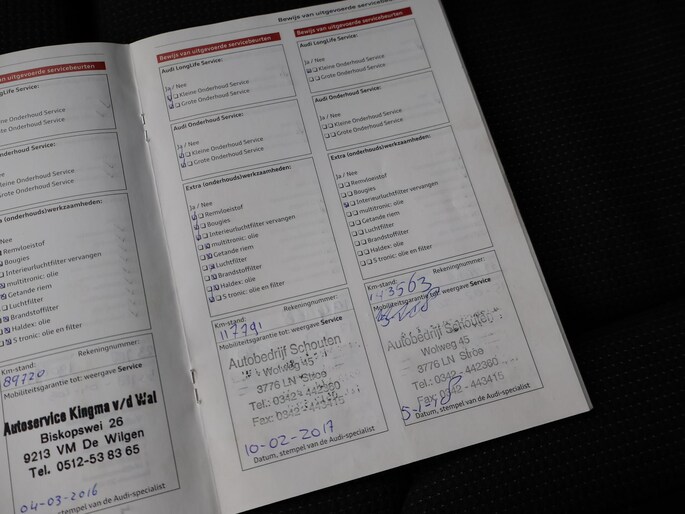 an uitgevoerde servicebeurten
ngLife Service:
eine Onderhoud Service
rote Onderhoud Service
nderhoud Service:
eine Onderhoud Service
Grote Onderhoud Service
a (onderhouds)werkzaamheden:
Nee
Remvloeistof
Bougies
Interieurluchtfilter vervangen
multitronic: olie
Getande riem
Luchtfilter
Brandstoffilter
Haldex: olie
S tronic: olie en filter
Km-stand:
Rekeningnummer:
89720
Mobiliteitsgarantie tot: weergave Service
Autoservice Kingma v/d Wal
Biskopswei 26
9213 VM De Wilgen
Tel. 0512-53 83 65
04-03-2016
stempel van de Audi-specialist
Bewijs van uitgevoerde servicebeurten
Audi LongLife Service:
Ja / Nee
Kleine Onderhoud Service
Grote Onderhoud Service
Audi Onderhoud Service:
Ja / Nee
Kleine Onderhoud Service
Grote Onderhoud Service
Extra (onderhouds)werkzaamheden:
Ja / Nee
Remvloeistof
Bougies
Interieurluchtfilter vervangen
multitronic: olie
Getande riem
Luchtfilter
Brandstoffilter
Haldex: olie
S tronic: olie en filter
Km-stand:
Rekeningnummer:
117791
Mobiliteitsgarantie tot: weergave Service
Autobedrijf Schouten
Wolweg 45
3776 LN Stroe
Tel.: 0342-442360
Fax: 0342-443415
10-02-2017
Datum, stempel van de Audi-specialist
Bewijs van uitgevoerde servicebeu
Bewijs van uitgevoerde servicebeurten
Audi LongLife Service:
Ja / Nee
Kleine Onderhoud Service
Grote Onderhoud Service
Audi Onderhoud Service:
Ja / Nee
Kleine Onderhoud Service
Grote Onderhoud Service
Extra (onderhouds)werkzaamheden:
Ja / Nee
Remvloeistof
Bougies
Interieurluchtfilter vervangen
multitronic: olie
Getande riem
Luchtfilter
Brandstoffilter
Haldex: olie
S tronic: olie en filter
Km-stand:
Rekeningnummer:
143563
Mobiliteitsgarantie tot: weergave Service
Autobedrijf Schouten
Wolweg 45
3776 LN Stroe
Tel.: 0342-442360
Fax: 0342-443415
Datum, stempel van de Audi-specialist